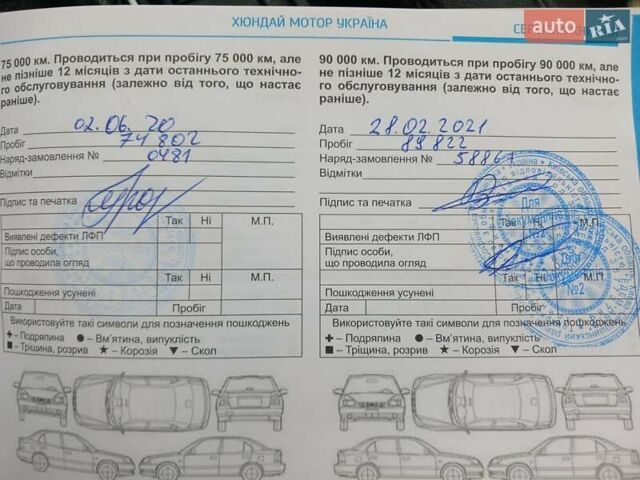 ХЮНДАЙ МОТОР УКРАЇНА
auto RIA.com
75 000 км. Проводиться при пробігу 75 000 км, але
не пізніше 12 місяців з дати останнього технічно-
го обслуговування (залежно від того, що настає
раніше).
Дата 02.06.20
Пробіг 74 802
Наряд-замовлення № 0481
Відмітки
Підпис та печатка
Так Ні М.П.
Виявлені дефекти ЛФП
Підпис особи,
що проводила огляд
Так Ні М.П.
Пошкодження усунені
Дата Пробіг
Використовуйте такі символи для позначення пошкоджень
+ - Подряпина ● - Вм'ятина, випуклість
■ - Тріщина, розрив ★ - Корозія ▼ - Скол
90 000 км. Проводиться при пробігу 90 000 км, але
не пізніше 12 місяців з дати останнього технічно-
го обслуговування (залежно від того, що настає
раніше).
Дата 28.02.2021
Пробіг 89822
Наряд-замовлення № 58867
Відмітки
Підпис та печатка
Так Ні М.П.
Виявлені дефекти ЛФП
Підпис особи,
що проводила огляд
Так Ні М.П.
Пошкодження усунені
Дата Пробіг
Використовуйте такі символи для позначення пошкоджень
+ - Подряпина ● - Вм'ятина, випуклість
■ - Тріщина, розрив ★ - Корозія ▼ - Скол
Для
документів
№2